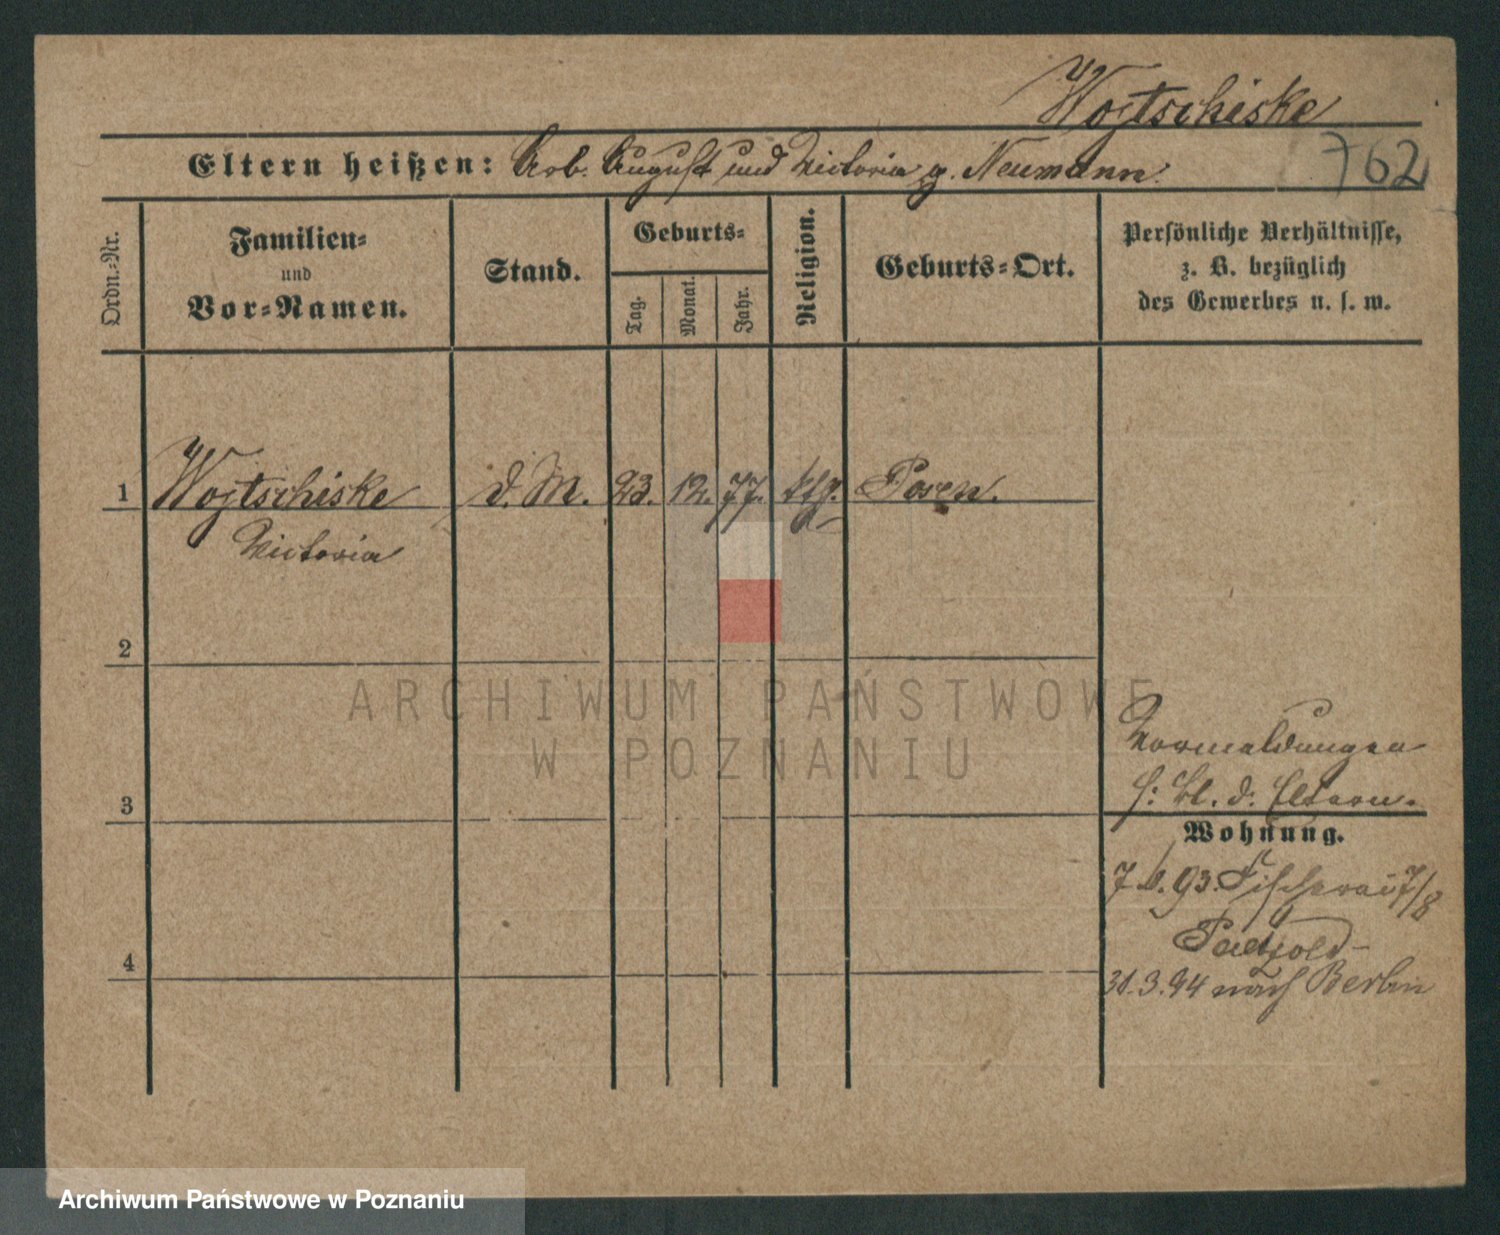 Wojtschiske
Eltern heißen: Arb. August und Victoria g. Neumann.
762
Ordn.-Nr.
Familien-
und
Vor-Namen.
Stand.
Geburts-
Tag.
Monat.
Jahr.
Religion.
Geburts-Ort.
Persönliche Verhältnisse,
z. B. bezüglich
des Gewerbes u. s. w.
1 Wojtschiske d. M. 23. 12. 77. kth. Posen.
Victoria
2
ARCHIWUM PAŃSTWOWE
W POZNANIU
Vormeldungen
s. Bl. d. Eltern.
3
Wohnung.
93. Fischerei 7/8
Paetzold
4
31.3.94 nach Berlin
Archiwum Państwowe w Poznaniu